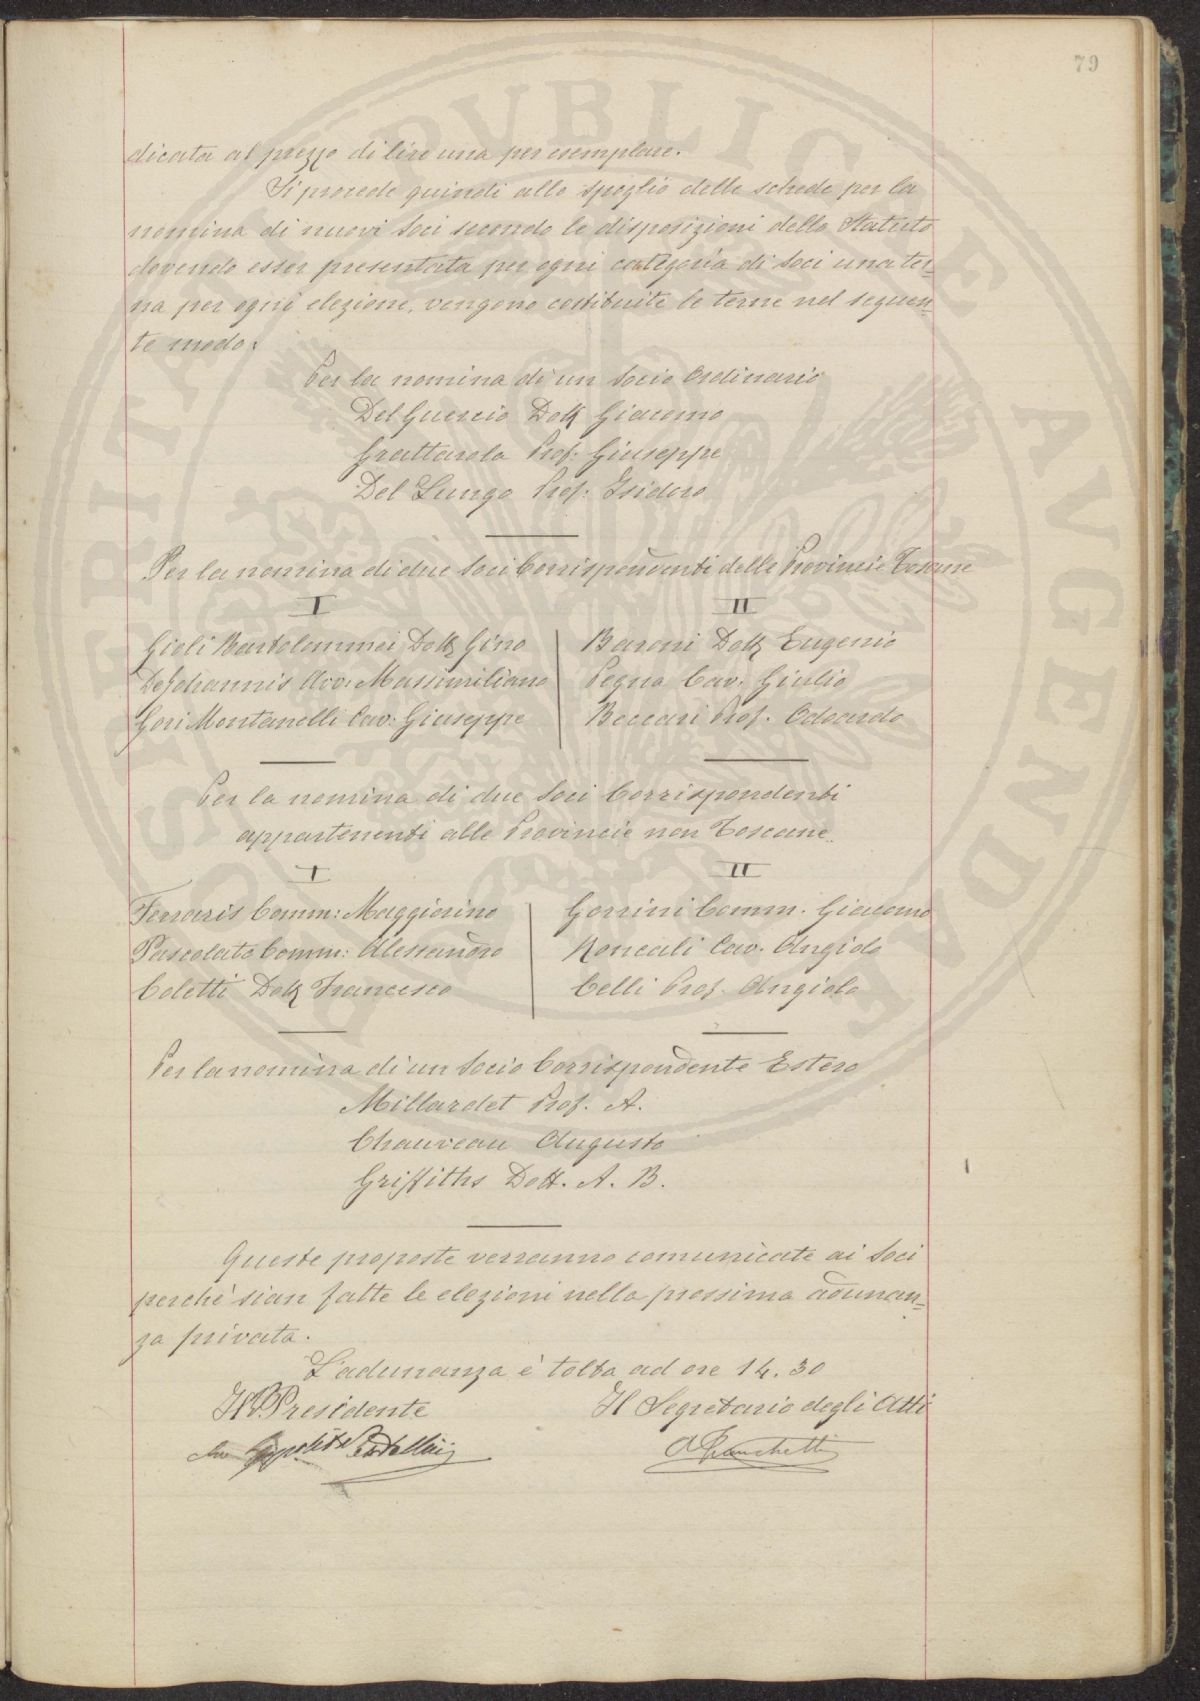 79
dicata al prezzo di lire una per esemplare.
Si procede quindi allo spoglio delle schede per la
nomina di nuovi Soci secondo le disposizioni dello Statuto
dovendo esser presentata per ogni categoria di Soci una ter=
na per ogni elezione, vengono costituite le terne nel seguen=
te modo:
Per la nomina di un Socio Ordinario
Del Guercio Dott Giacomo
Grattarola Prof. Giuseppe
Del Lungo Prof. Isidoro
Per la nomina di due Soci Corrispondenti delle Provincie Toscane
I
Gioli Bartolommei Dott Gino
De Johannis Avv: Massimiliano
Gori Montanelli Cav. Giuseppe
II
Baroni Dott Eugenio
Pegna Cav. Giulio
Beccari Prof. Odoardo
Per la nomina di due Soci Corrispondenti
appartenenti alle Provincie non Toscane.
I
Ferraris Comm: Maggiorino
Pascolato Comm: Alessandro
Coletti Dott Francesco
II
Gorrini Comm. Giacomo
Roncali Cav. Angiolo
Celli Prof. Angiolo
Per la nomina di un Socio Corrispondente Estero
Millardet Prof. A.
Chauveau Augusto
Griffiths Dott. A. B.
Queste proposte verranno comunicate ai Soci
perchè sian fatte le elezioni nella prossima adunan=
za privata.
L'adunanza è tolta ad ore 14.30
Il V. Presidente
Il Segretario degli Atti
A Franchetti